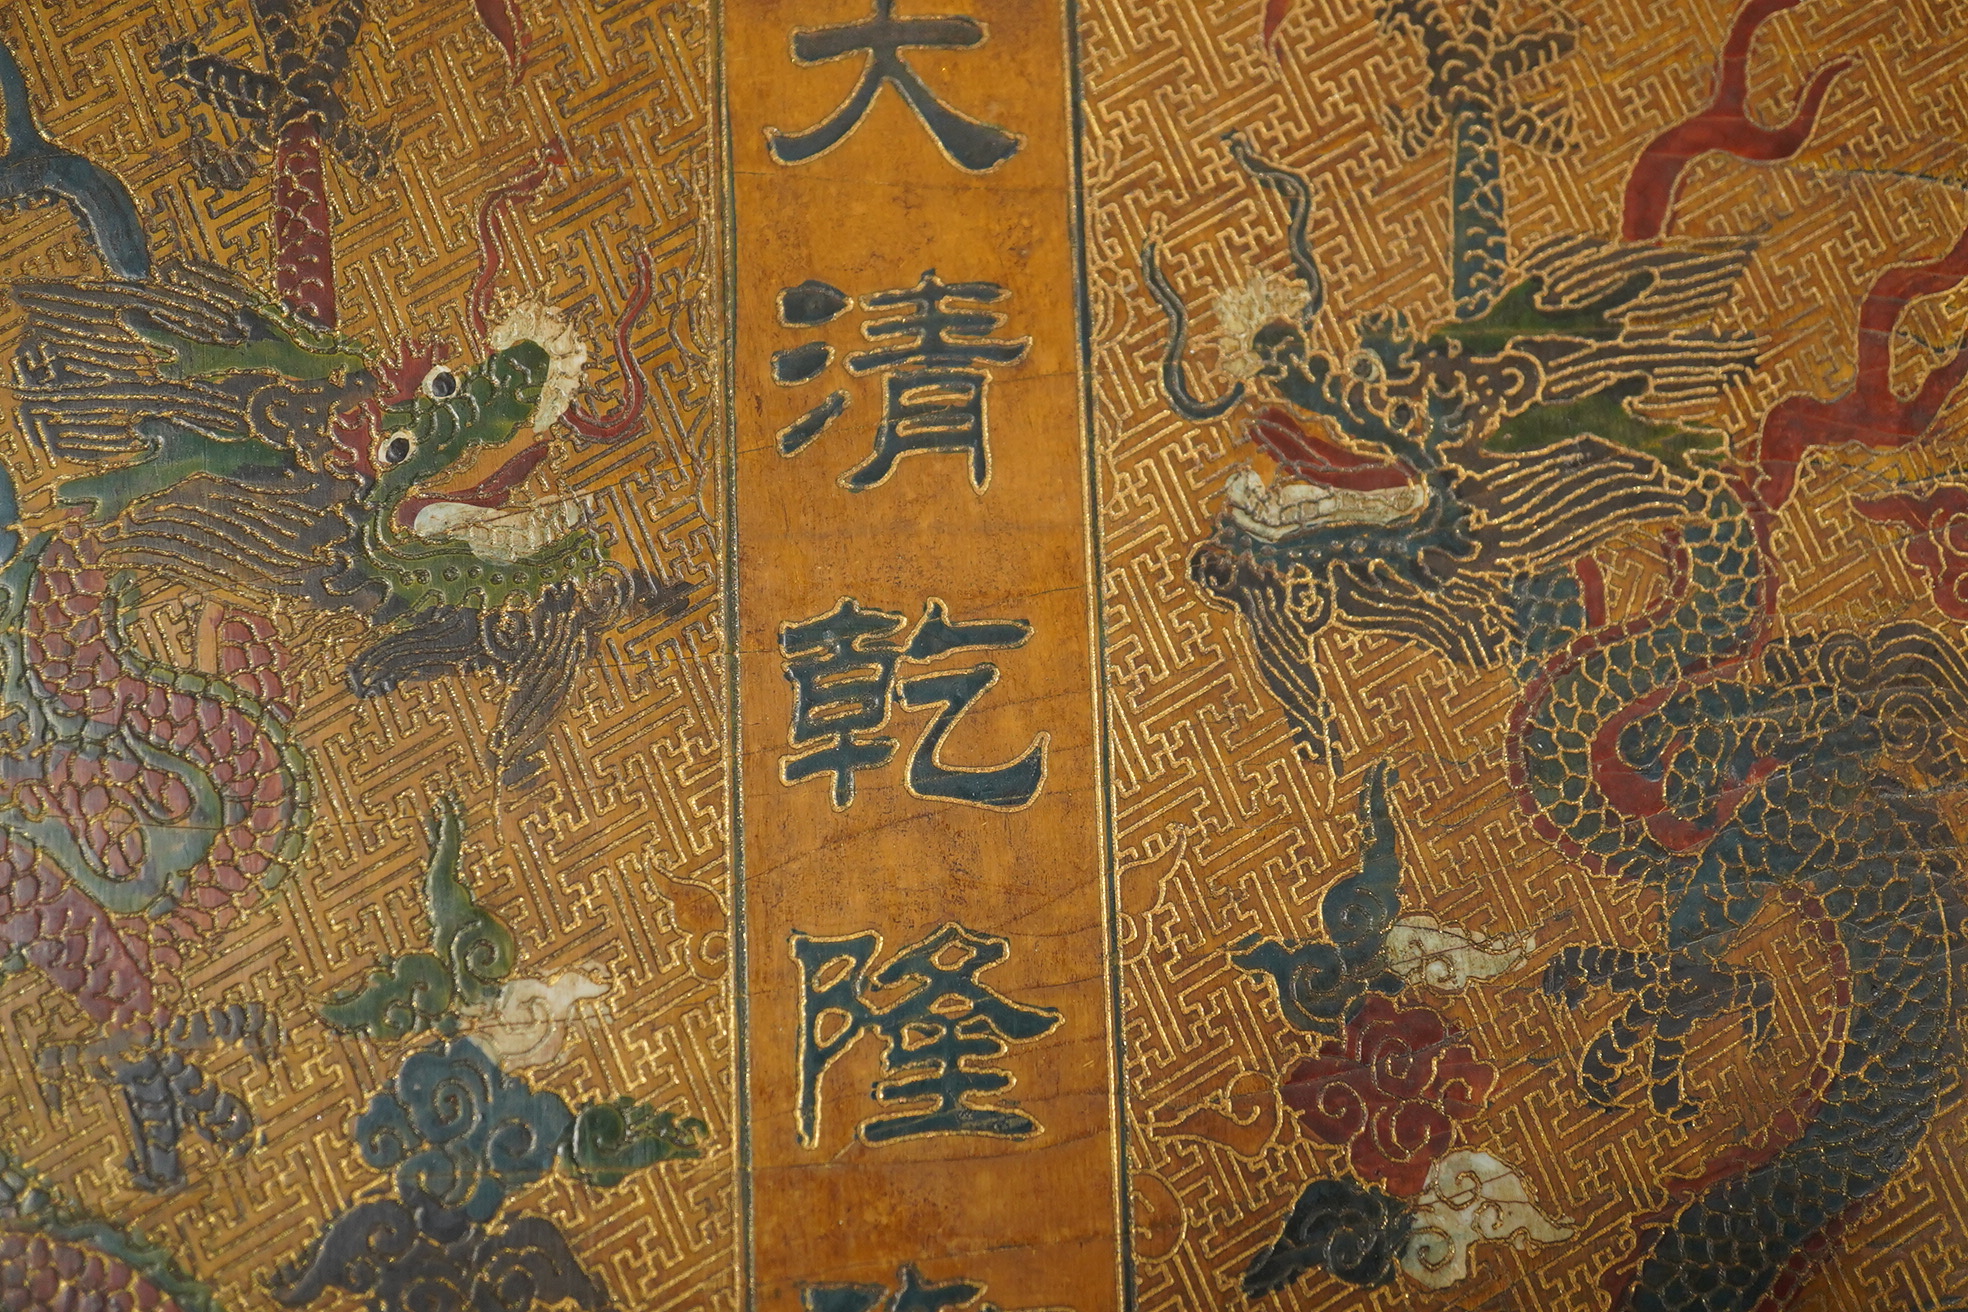 大清乾隆